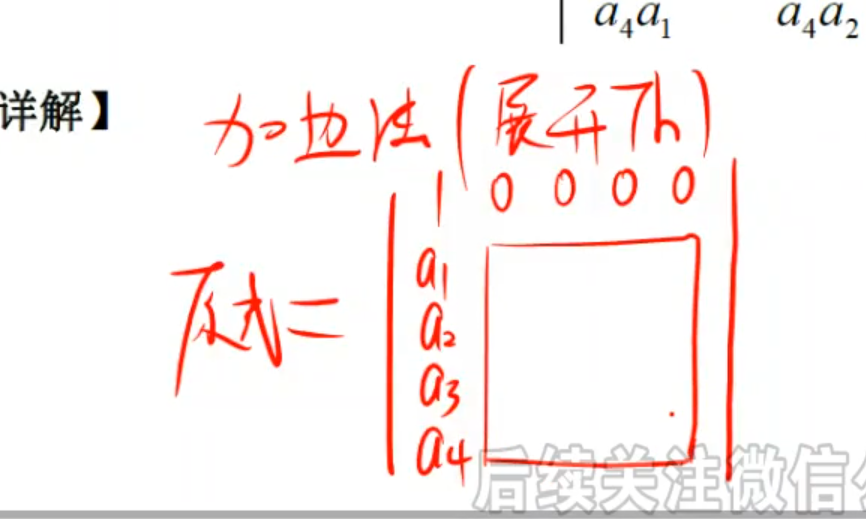 a₄a₁ a₄a₂
详解】
加边法(展开Th)
原式=
1 0 0 0 0
a₁
a₂
a₃
a₄
后续关注微信公